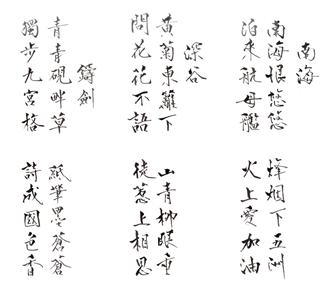 南海
南海恨悠悠
泊來航母艦
烽烟下五洲
火上愛加油
深谷
黄菊東籬下
問花花不語
山青柳暝垂
徒惹上相思
鑄劍
青青硯畔草
獨步九宮格
紙筆墨蒼蒼
詩成國色香